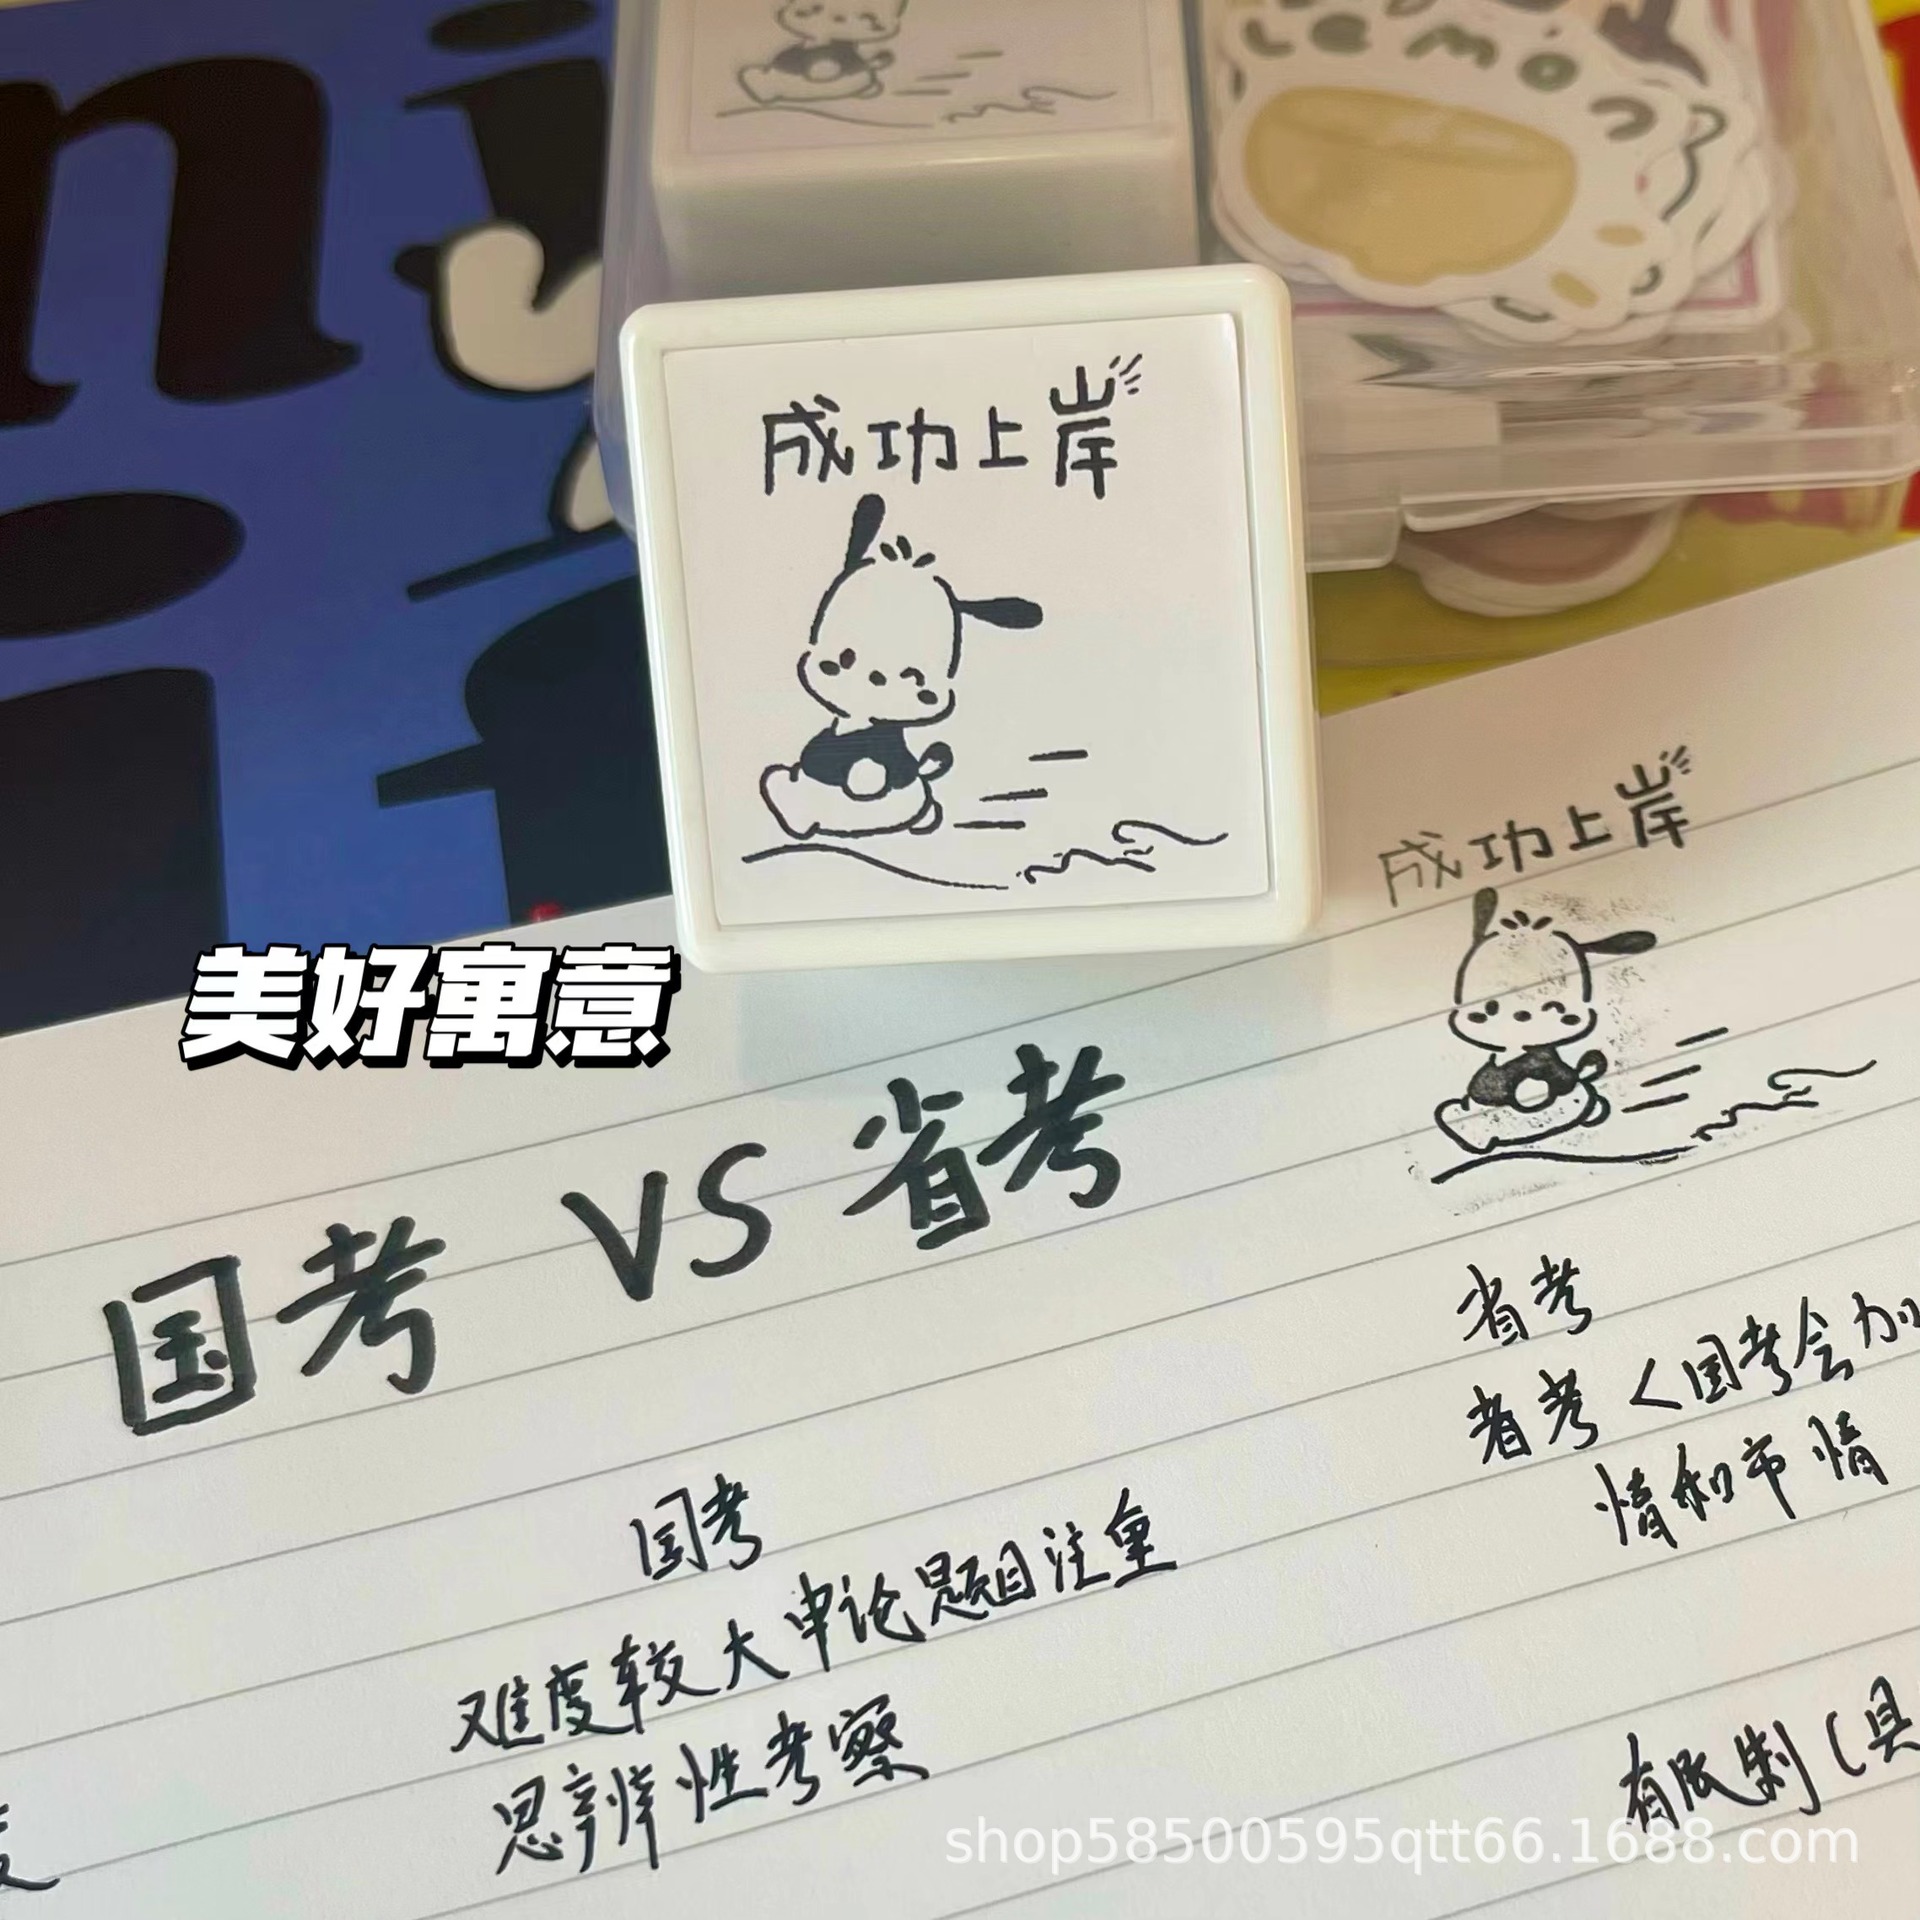 Lemo
成功上岸
成功上岸
美好寓意
国考 VS 省考
省考
省考<国考会加
情和市情
国考
难度较大申论题目注重
思辨性考察
有限制(具
shop58500595qtt66.1688.com